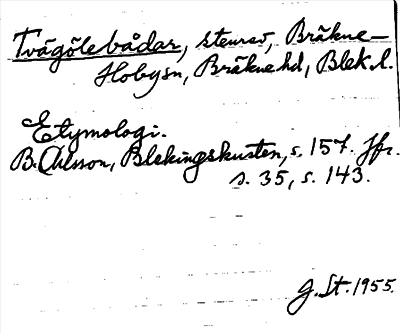 Tvägölebådar, stenrev, Bräkne-
Hobysn, Bräkne hd, Blek. l.
Etymologi.
B. Ohlsson, Blekingskusten, s. 157. Jfr.
s. 35, s. 143.
G. St. 1955.